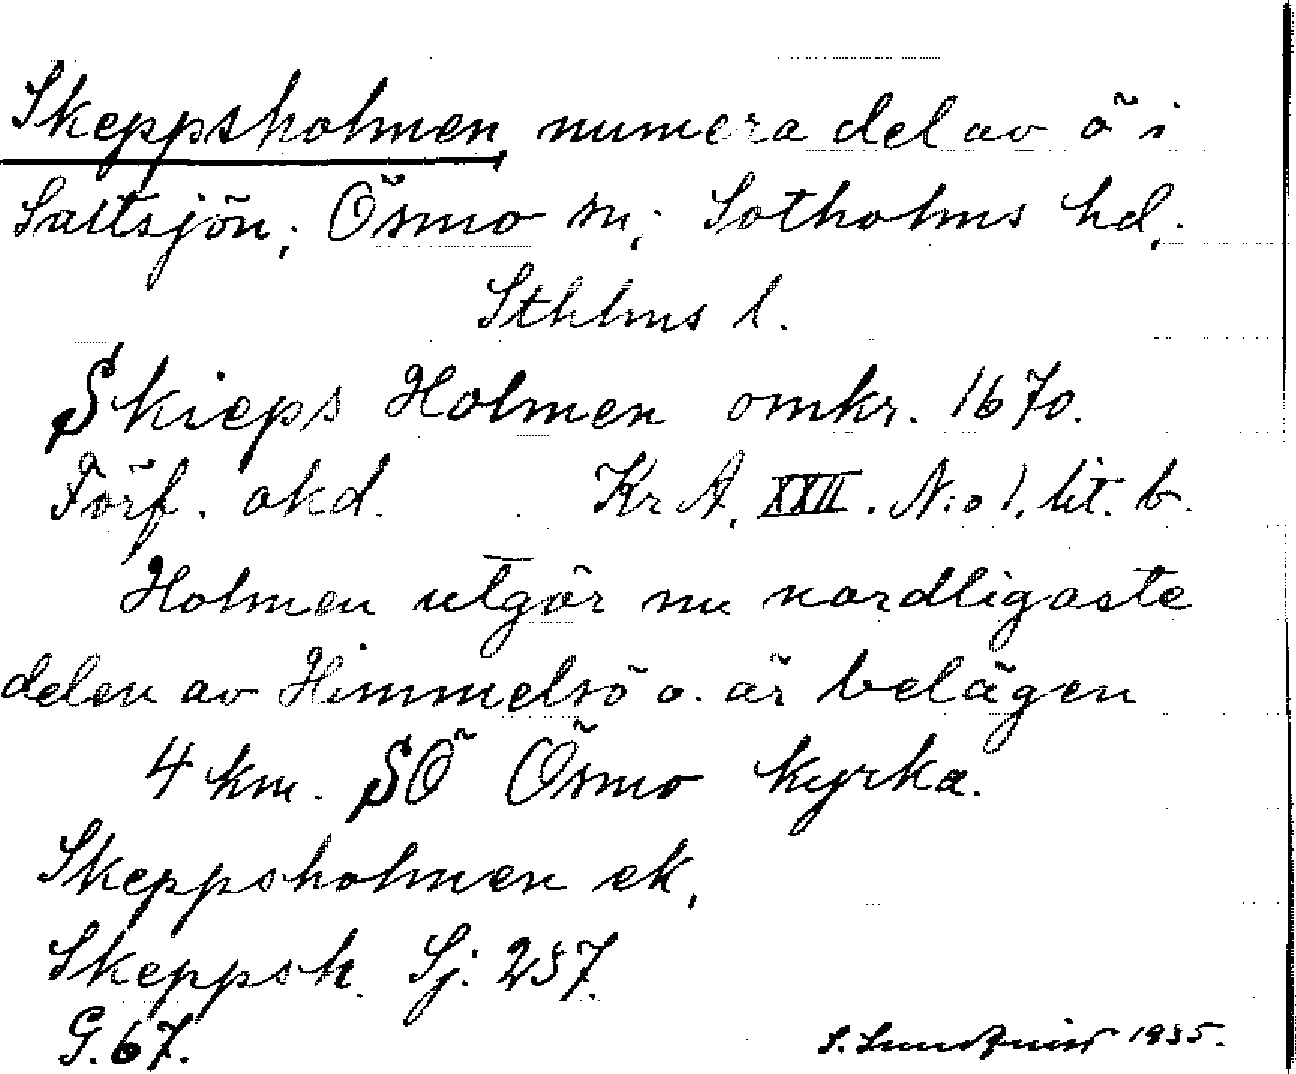 Skeppsholmen, numera del av ö i
Saltsjön; Ösmo sn; Sotholms hd,
Sthlms l.
Skieps Holmen omkr. 1670.
Förf. okd. Kr A. XXII. N:o 1. lit. b.
Holmen utgör nu nordligaste
delen av Himmelsö o. är belägen
4 km. SÖ Ösmo kyrka.
Skeppsholmen ek,
Skeppsh. Sj. 257.
G. 67. 1935.